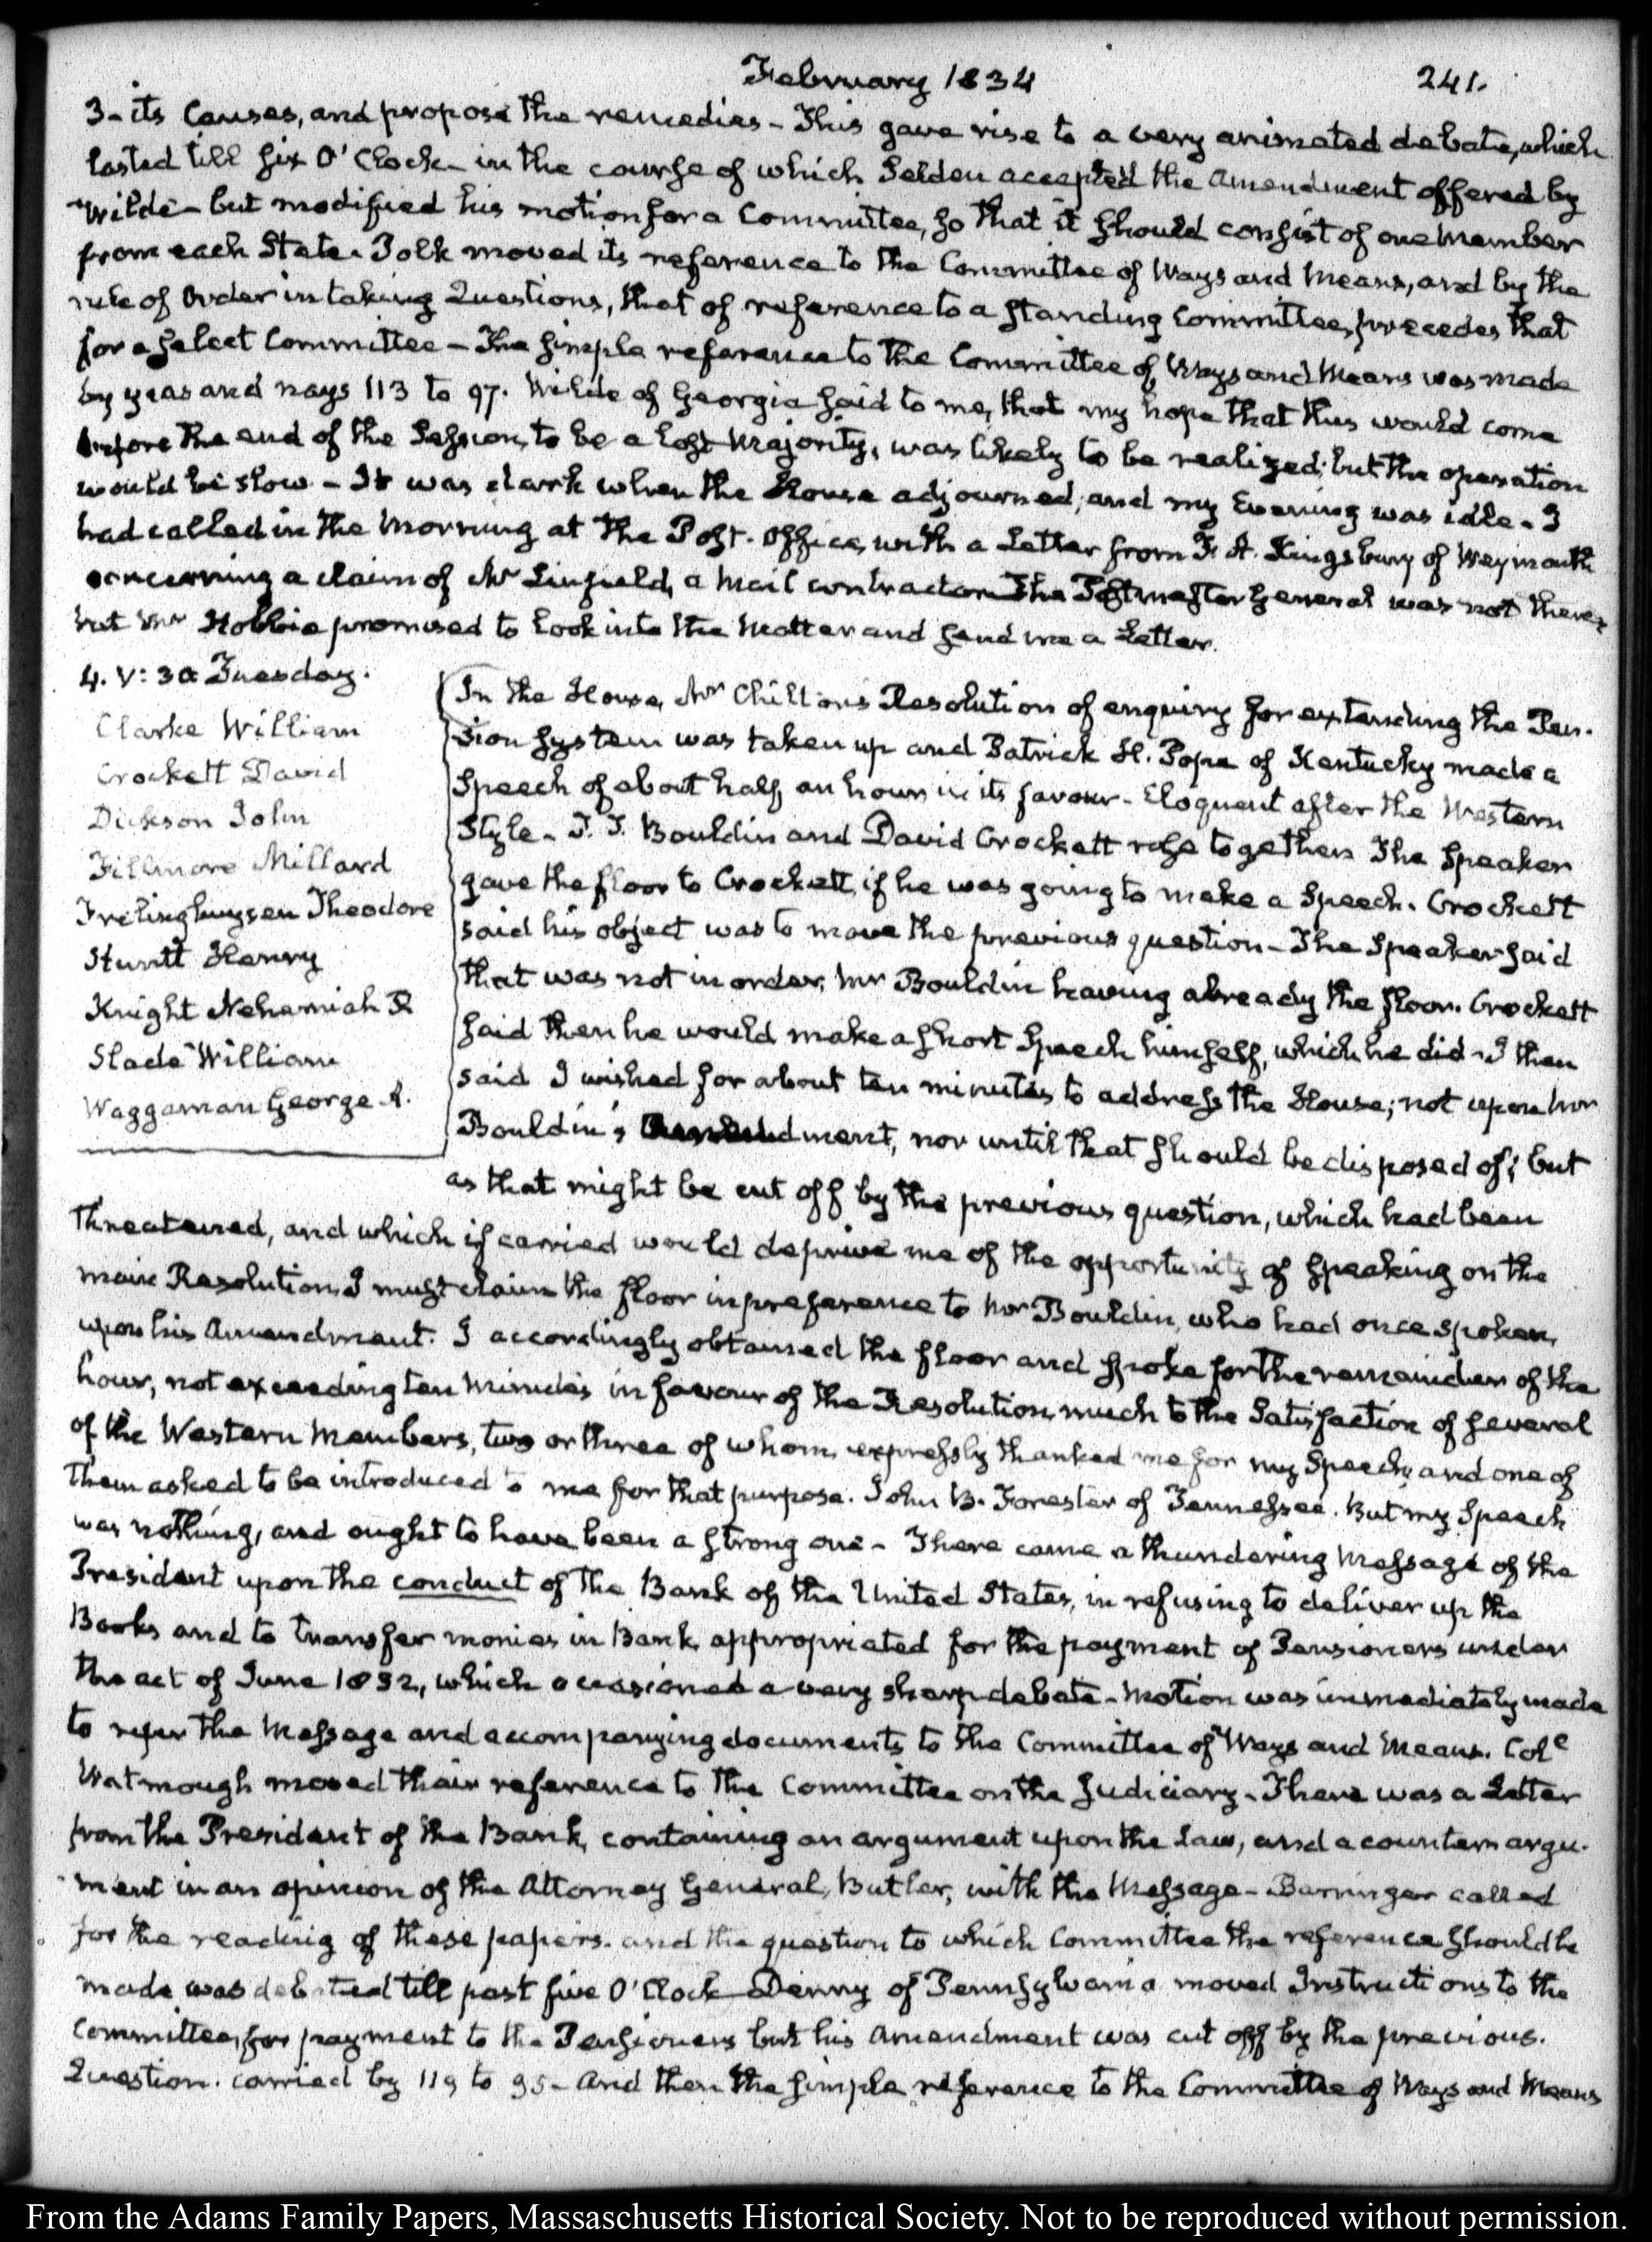 February 1834
241.
3- its Causes, and propose the remedies - This gave rise to a very animated debate, which
lasted till six O'Clock - in the course of which Selden accepted the Amendment offered by
Wilde - but modified his motion for a Committee, so that it should consist of one member
from each State. Polk moved its reference to the Committee of Ways and Means, and by the
rule of Order in taking Questions, that of reference to a standing Committee, precedes that
for a select Committee - The simple reference to the Committee of Ways and Means was made
by yeas and nays 113 to 97. Wilde of Georgia said to me, that my hope that this would come
before the end of the Session, to be a lost Majority, was likely to be realized; but the operation
would be slow - It was dark when the House adjourned; and my Evening was idle. I
had called in the Morning at the Post-Office, with a Letter from F. A. Kingsbury of Weymouth
concerning a claim of Mr Linfield, a Mail contractor. The Postmaster General was not there,
but Mr Hobbie promised to look into the matter and send me a Letter.
4. V: 30 Tuesday.
Clarke William
Crockett David
Dickson John
Fillmore Millard
Frelinghuysen Theodore
Huntt Henry
Knight Nehemiah R
Slade William
Waggaman George A.
In the House, Mr Chilton's Resolution of enquiry for extending the Pen-
sion system was taken up and Patrick H. Pope of Kentucky made a
Speech of about half an hour in its favour - Eloquent after the Western
Style - T. T. Bouldin and David Crockett rose together. The Speaker
gave the floor to Crockett, if he was going to make a Speech. Crockett
said his object was to move the previous question - The Speaker said
that was not in order, Mr Bouldin having already the floor. Crockett
said then he would make a short Speech himself, which he did - I then
said I wished for about ten minutes to address the House; not upon Mr
Bouldin's Amendment, nor until that should be disposed of; but
as that might be cut off by the previous question, which had been
threatened, and which if carried would deprive me of the opportunity of speaking on the
main Resolution, I must claim the floor in preference to Mr Bouldin, who had once spoken,
upon his Amendment. I accordingly obtained the floor and spoke for the remainder of the
hour, not exceeding ten Minutes in favour of the Resolution, much to the Satisfaction of several
of the Western Members, two or three of whom expressly thanked me for my Speech, and one of
them asked to be introduced to me for that purpose. John B. Forester of Tennessee. But my Speech
was nothing, and ought to have been a strong one - There came a thundering Message of the
President upon the conduct of the Bank of the United States, in refusing to deliver up the
Books and to transfer monies in Bank, appropriated for the payment of Pensioners under
the act of June 1832, which occasioned a very sharp debate - Motion was immediately made
to refer the Message and accompanying documents to the Committee of Ways and Means. Col
Watmough moved their reference to the Committee on the Judiciary - There was a Letter
from the President of the Bank, containing an argument upon the Law, and a counter argu-
ment in an opinion of the Attorney General, Butler, with the Message - Barringer called
for the reading of these papers. and the question to which Committee the reference should be
made was debated till past five O'Clock - Denny of Pennsylvania moved Instructions to the
Committee, for payment to the Pensioners but his Amendment was cut off by the previous.
Question. carried by 119 to 95 - And then the simple reference to the Committee of Ways and Means
From the Adams Family Papers, Massaschusetts Historical Society. Not to be reproduced without permission.